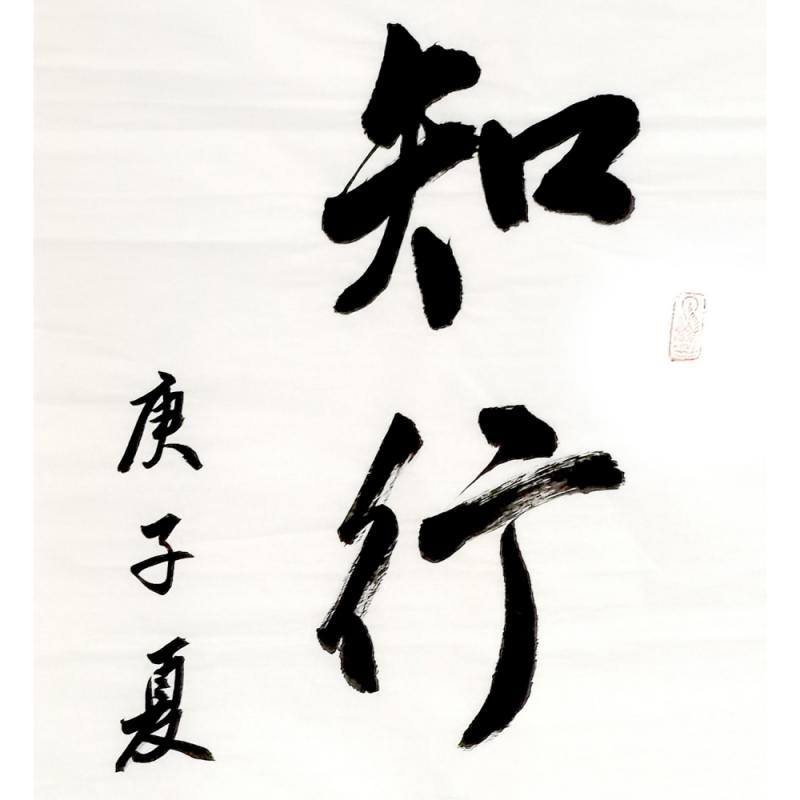 知行
庚子夏